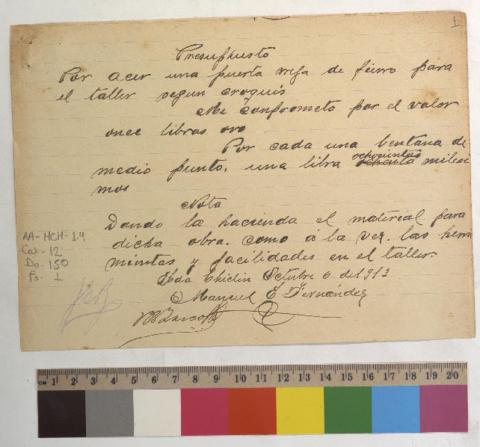 1
Presuphusto
Por acer una puerta reja de fierro para
el taller segun croquis
Me comprometo por el valor
once libras oro
Por cada una bentana de
medio punto, una libra ochocientas milesi
mos
Nota
Dando la hacienda el material para
dicha obra. como á la vez. las herra
mientas y facilidades en el taller.
Hda Chiclin Octubre 6 del 913
Manuel E Fernández
AA-HCH-1.4
Caj- 12
Do- 150
Fs- 1
cm 1 2 3 4 5 6 7 8 9 10 11 12 13 14 15 16 17 18 19 20